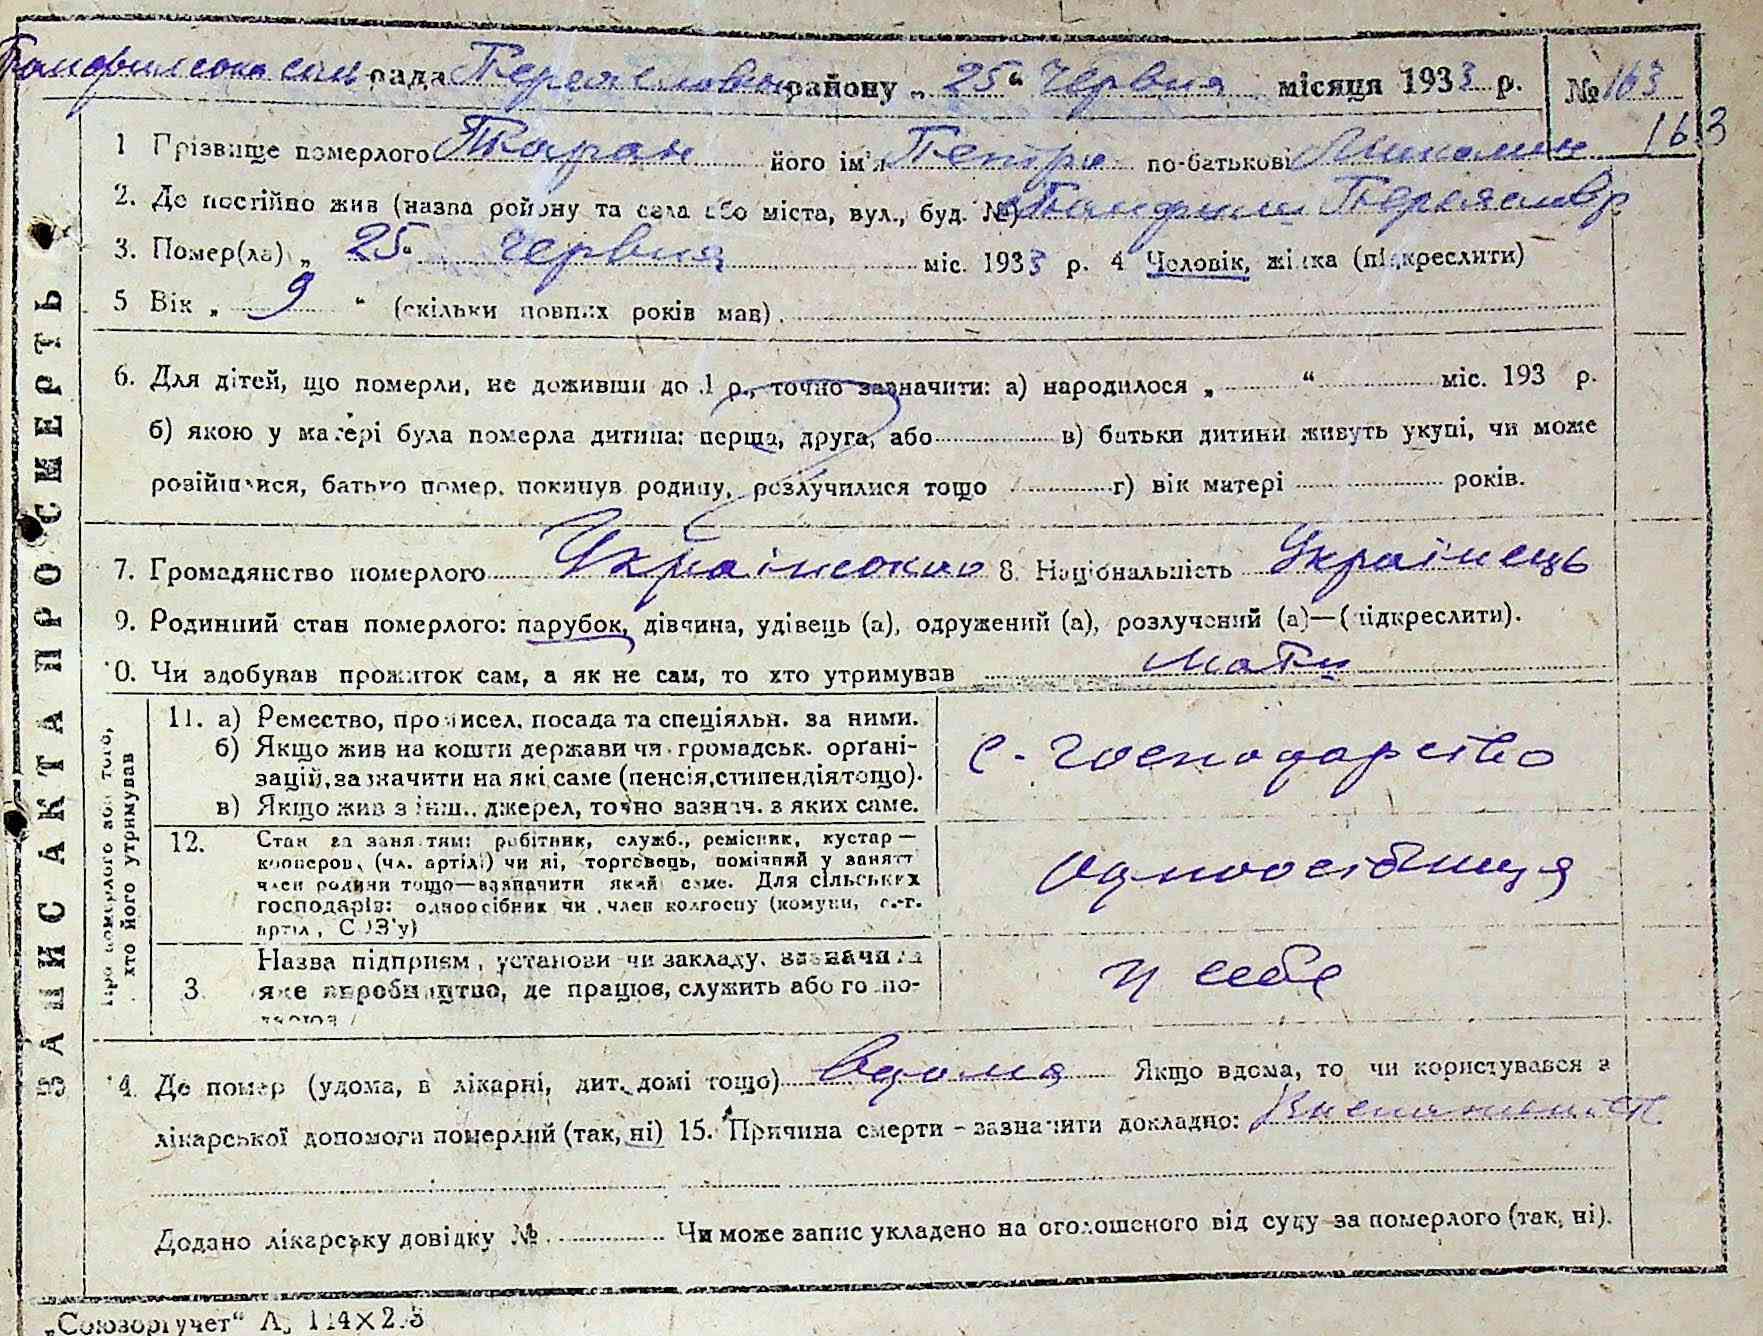 рада районну „ 25 “ Червня місяця 1933 р. № 163
163
1 Прізвище померлого Таран його ім'я Петро по-батькові
2. Де постійно жив (назва району та села або міста, вул., буд. №) Панфили Переяславр
3. Помер(ла) „ 25 “ червня міс. 1933 р. 4 Человік, жінка (підкреслити)
5 Вік „ 9 “ (скільки повних років мав)
6. Для дітей, що померли, не доживши до 1 р., точно зазначити: а) народилося „ “ міс. 193 р.
б) якою у матері була померла дитина: перша, друга, або в) батьки дитини живуть укупі, чи може
розійшлися, батько помер. покинув родину, розлучилися тощо г) вік матері років.
7. Громадянство померлого 8. Національність Українець
9. Родинний стан померлого: парубок, дівчина, удівець (а), одружений (а), розлучений (а)—(підкреслити).
0. Чи здобував прожиток сам, а як не сам, то хто утримував мати
ЗАПИС АКТА ПРО СМЕРТЬ
Про померлого або того, хто його утримував
11. а) Ремество, промисел. посада та спеціяльн. за ними.
б) Якщо жив на кошти держави чи громадськ. орґані-
зацій, зазначити на які саме (пенсія, стипендія тощо).
в) Якщо жив з інш. джерел, точно зазнач. з яких саме.
с-господарство
12. Стан за заняттям: робітник, служб., ремісник, кустар—
кооперов. (чл. артілі) чи ні, торговець, помічний у занятт
член родини тощо—зазначити який саме. Для сільських
господарів: одноосібник чи член колгоспу (комуни, с.-г.
артіл, СОЗ'у)
одноосібниця
3 Назва підприєм, установи чи закладу.
яке виробництво, де працює, служить або
у себе
4. Де помер (удома, в лікарні, дит. домі тощо) вдома Якщо вдома, то чи користувався з
лікарської допомоги померлий (так, ні) 15. Причина смерти - зазначити докладно:
Додано лікарську довідку № Чи може запис укладено на оголошеного від суду за померлого (так, ні).
„Союзоргучет“